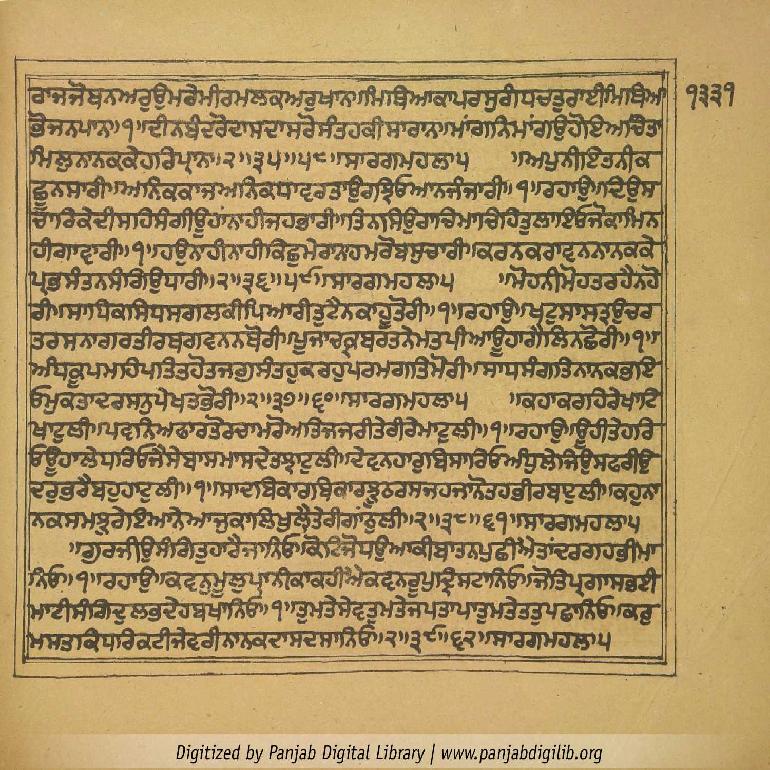 ੧੩੩੧
ਰਾਜਜੋਬਨਅਰੁਉਮਰੇਮੀਰਮਲਕਅਰੁਖਾਨ॥ਮਿਥਿਆਕਾਪਰਸੁਗੰਧਚਤੁਰਾਈਮਿਥਿਆ
ਭੋਜਨਪਾਨ॥੧॥ਦੀਨਬੰਧਰੋਦਾਸਦਾਸਰੋਸੰਤਹਕੀਸਾਰਾਨ॥ਮਾਂਗਨਿਮਾਂਗਉਹੋਇਅਚਿੰਤਾ
ਮਿਲੁਨਾਨਕਕੇਹਰਿਪ੍ਰਾਨ॥੨॥੩੫॥੫੮॥ਸਾਰਗਮਹਲਾ੫ ॥ਅਪੁਨੀਇਤਨੀਕ
ਛੂਨਸਾਰੀ॥ਅਨਿਕਕਾਜਅਨਿਕਧਾਵਰਤਾਉਰਝਿਓਆਨਜੰਜਾਰੀ॥੧॥ਰਹਾਉ॥ਦਿਉਸ
ਚਾਰਿਕੇਦੀਸਹਿਸੰਗੀਊਹਾਂਨਾਹੀਜਹਭਾਰੀ॥ਤਿਨਸਿਉਰਾਚਿਮਾਚਿਹਿਤੁਲਾਇਓਜੋਕਾਮਿਨ
ਹੀਗਾਵਾਰੀ॥੧॥ਹਉਨਾਹੀਨਾਹੀਕਿਛੁਮੇਰਾਨਾਹਮਰੋਬਸੁਚਾਰੀ॥ਕਰਨਕਰਾਵਨਨਾਨਕਕੇ
ਪ੍ਰਭਸੰਤਨਸੰਗਿਉਧਾਰੀ॥੨॥੩੬॥੫੯॥ਸਾਰਗਮਹਲਾ੫ ॥ਮੋਹਨੀਮੋਹਤਰਹੈਨਹੋ
ਰੀ॥ਸਾਧਿਕਸਿਧਸਗਲਕੀਪਿਆਰੀਤੁਟੈਨਕਾਹੂਤੋਰੀ॥੧॥ਰਹਾਉ॥ਖਟੁਸਾਸਤ੍ਰਉਚਰ
ਤਰਸਨਾਗਰਤੀਰਥਗਵਨਨਥੋਰੀ॥ਪੂਜਾਚਕ੍ਰਬਰਤਨੇਮਤਪੀਆਊਹਾਗੈਲਿਨਛੋਰੀ॥੧॥
ਅੰਧਕੂਪਮਹਿਪਤਿਤਹੋਤਜਗੁਸੰਤਹੁਕਰਹੁਪਰਮਗਤਿਮੋਰੀ॥ਸਾਧਸੰਗਤਿਨਾਨਕਭਇ
ਓਮੁਕਤਾਦਰਸਨੁਪੇਖਤਭੋਰੀ॥੨॥੩੭॥੬੦॥ਸਾਰਗਮਹਲਾ੫ ॥ਕਹਾਕਰਹਿਰੇਖਾਟਿ
ਖਾਟੁਲੀ॥ਪਵਨਿਅਫਾਰਤੋਰਚਾਮਰੋਅਤਿਜਜਰੀਤੇਰੀਰੇਮਾਟੁਲੀ॥੧॥ਰਹਾਉ॥ਊਹੀਤੇਹਰਿ
ਓਊਹਾਲੇਧਰਿਓਜੈਸੇਬਾਸਾਮਾਸਦੇਤਝਾਟੁਲੀ॥ਦੇਵਨਹਾਰੁਬਿਸਾਰਿਓਅੰਧੁਲੇਜਿਉਸਫਰੀਉ
ਦਰੁਭਰੈਬਹਿਹਾਟੁਲੀ॥੧॥ਸਾਦਬਿਕਾਰਬਿਕਾਰਝੂਠਰਸਜਹਜਾਨੋਤਹਭੀਰਬਾਟੁਲੀ॥ਕਹੁਨਾ
ਨਕਸਮਝੁਰੇਇਆਨੇਆਜੁਕਾਲਿਖੁਲੈਤੇਰੀਗਾਂਠੁਲੀ॥੨॥੩੮॥੬੧॥ਸਾਰਗਮਹਲਾ੫
॥ਗੁਰਜੀਉਸੰਗਿਤੁਹਾਰੈਜਾਨਿਓ॥ਕੋਟਿਜੋਧਉਆਕੀਬਾਤਨਪੁਛੀਐਤਾਂਦਰਗਹਭੀਮਾ
ਨਿਓ॥੧॥ਰਹਾਉ॥ਕਵਨੁਮੂਲੁਪ੍ਰਾਨੀਕਾਕਹੀਐਕਵਨਰੂਪੁਦ੍ਰਿਸਟਾਨਿਓ॥ਜੋਤਿਪ੍ਰਗਾਸਭਈ
ਮਾਟੀਸੰਗਿਦੁਲਭਦੇਹਬਖਾਨਿਓ॥੧॥ਤੁਮਤੇਸੇਵਤੁਮਤੇਜਪਤਾਪਾਤੁਮਤੇਤਤੁਪਛਾਨਿਓ॥ਕਰੁ
ਮਸਤਕਿਧਰਿਕਟੀਜੇਵਰੀਨਾਨਕਦਾਸਦਸਾਨਿਓ॥੨॥੩੯॥੬੨॥ਸਾਰਗਮਹਲਾ੫
Digitized by Panjab Digital Library | www.panjabdigilib.org